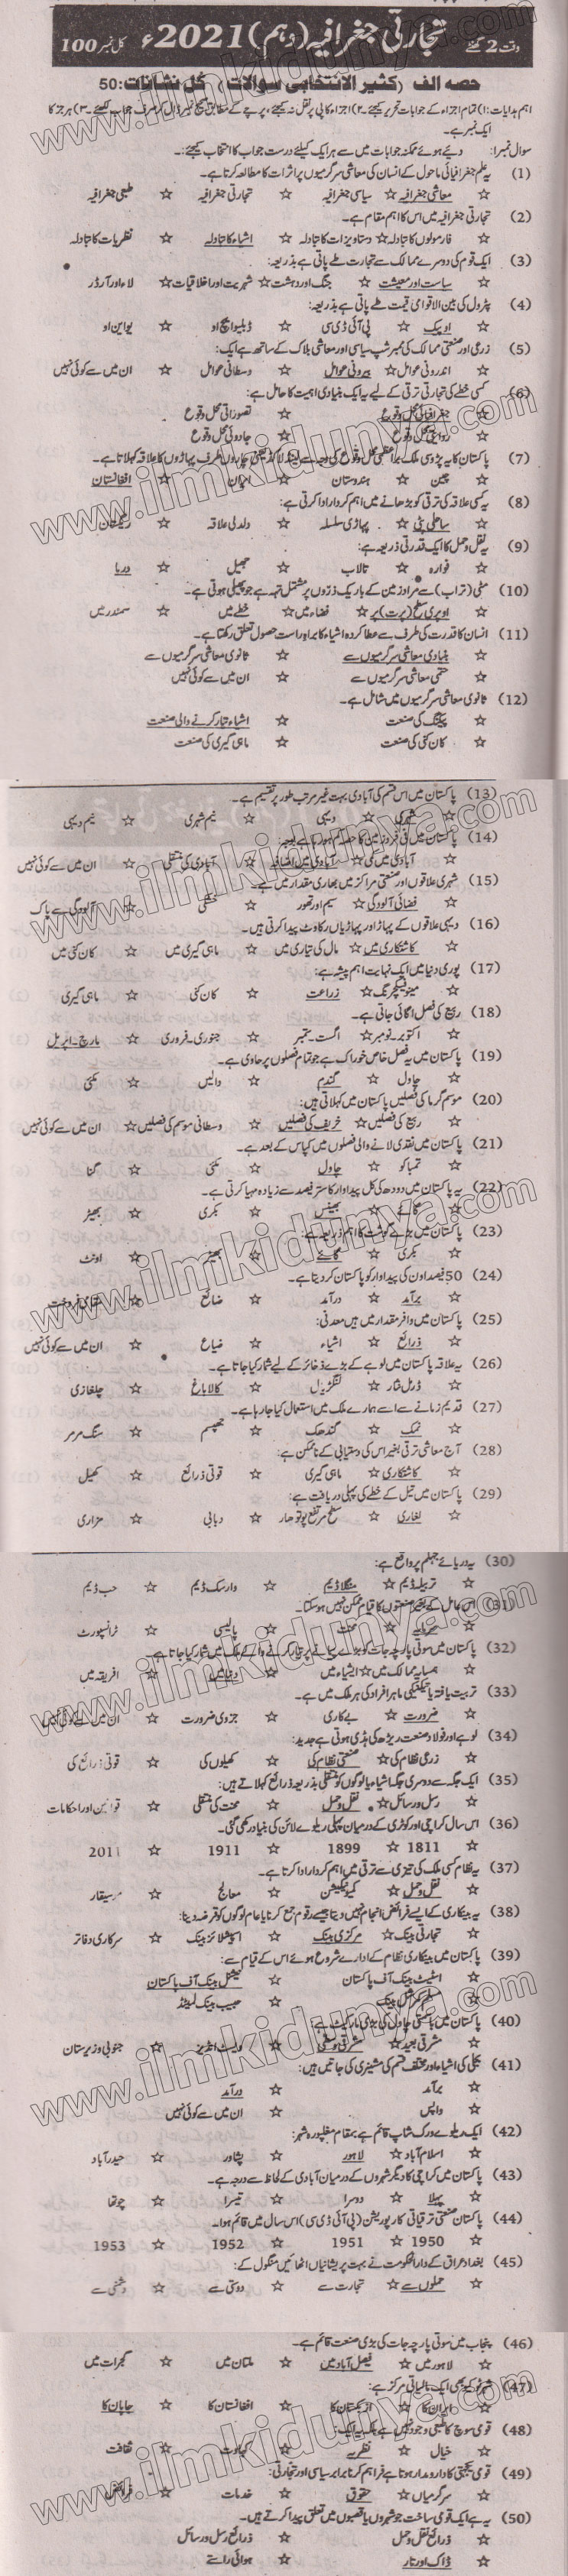 وقت 2 گھنٹے
تجارتی جغرافیہ (دہم) 2021ء
کل نمبر 100
حصہ الف (کثیر الانتخابی سوالات) کل نشانات: 50
اہم ہدایات: ۱) تمام اجزاء کے جوابات تحریر کیجئے۔ ۲) اجزاء کاپی پر نقل نہ کیجئے، پرچے کے مطابق صحیح نمبر ڈال کر صرف جواب لکھئے۔ ۳) ہر جز کا
ایک نمبر ہے۔
سوال نمبر۱: دیے ہوئے ممکنہ جوابات میں سے ہر ایک کیلئے درست جواب کا انتخاب کیجئے:۔
(1) یہ علم جغرافیائی ماحول کے انسان کی معاشی سرگرمیوں پر اثرات کا مطالعہ کرتا ہے۔
☆ معاشی جغرافیہ ☆ سیاسی جغرافیہ ☆ تجارتی جغرافیہ ☆ طبعی جغرافیہ
(2) تجارتی جغرافیہ میں اس کا اہم مقام ہے۔
☆ فارمولوں کا تبادلہ ☆ دستاویزات کا تبادلہ ☆ اشیاء کا تبادلہ ☆ نظریات کا تبادلہ
(3) ایک قوم کی دوسرے ممالک سے تجارت طے پاتی ہے بذریعہ:
☆ سیاست اور معیشت ☆ جنگ اور دہشت ☆ شہریت اور اخلاقیات ☆ لاء اور آرڈر
(4) پٹرول کی بین الاقوامی قیمت طے پاتی ہے بذریعہ:
☆ اوپیک ☆ پی آئی ڈی سی ☆ ڈبلیو ایچ او ☆ یو این او
(5) زرعی اور صنعتی ممالک کی ممبر شپ سیاسی اور معاشی بلاک کے ساتھ ہے ایک:
☆ اندرونی عوامل ☆ بیرونی عوامل ☆ وسطانی عوامل ☆ ان میں سے کوئی نہیں
(6) کسی خطے کی تجارتی ترقی کے لیے یہ ایک بنیادی اہمیت کا حامل ہے:
☆ جغرافیائی محل وقوع ☆ تصوراتی محل وقوع
☆ روایتی محل وقوع ☆ جادوئی محل وقوع
(7) پاکستان کا یہ پڑوسی ملک براعظمی محل وقوع کی وجہ سے لینڈ لاکڈ یعنی چاروں طرف پہاڑوں کا علاقہ کہلاتا ہے۔
☆ چین ☆ ہندوستان ☆ ایران ☆ افغانستان
(8) یہ کسی علاقہ کی ترقی کو بڑھانے میں اہم کردار ادا کرتی ہے:
☆ ساحلی پٹی ☆ پہاڑی سلسلہ ☆ دلدلی علاقہ ☆ ریگستان
(9) یہ نقل و حمل کا ایک قدرتی ذریعہ ہے:
☆ فوارہ ☆ تالاب ☆ جھیل ☆ دریا
(10) مٹی (تراب) سے مراد زمین کے باریک ذروں پر مشتمل تہہ ہے جو پھیلی ہوتی ہے۔
☆ اوپری سطح (پرت) پر ☆ فضاء میں ☆ خطے میں ☆ سمندر میں
(11) انسان کا قدرت کی طرف سے عطا کردہ اشیاء کا براہ راست حصول تعلق رکھتا ہے۔
☆ بنیادی معاشی سرگرمیوں سے ☆ ثانوی معاشی سرگرمیوں سے
☆ حتمی معاشی سرگرمیوں سے ☆ ان میں سے کوئی نہیں
(12) ثانوی معاشی سرگرمیوں میں شامل ہے۔
☆ پیکنگ کی صنعت ☆ اشیاء تیار کرنے والی صنعت
☆ کان کنی کی صنعت ☆ ماہی گیری کی صنعت
(13) پاکستان میں اس قسم کی آبادی بہت غیر مرتب طور پر تقسیم ہے۔
☆ شہری ☆ دیہی ☆ نیم شہری ☆ نیم دیہی
(14) پاکستان میں فی فرد زمین کا حصہ کم ہو رہا ہے بوجہ:
☆ آبادی میں کمی ☆ آبادی میں اضافہ ☆ آبادی کی منتقلی ☆ ان میں سے کوئی نہیں
(15) شہری علاقوں اور صنعتی مراکز میں بھاری مقدار میں ہے۔
☆ فضائی آلودگی ☆ سیم اور تھور ☆ خشکی ☆ آلودگی سے پاک
(16) دیہی علاقوں کے پہاڑ اور پہاڑیاں رکاوٹ پیدا کرتی ہیں۔
☆ کاشتکاری میں ☆ مال کی تیاری میں ☆ ماہی گیری میں ☆ کان کنی میں
(17) پوری دنیا میں ایک نہایت اہم پیشہ ہے:
☆ مینوفیکچرنگ ☆ زراعت ☆ کان کنی ☆ ماہی گیری
(18) ربیع کی فصل اگائی جاتی ہے۔
☆ اکتوبر۔نومبر ☆ اگست۔ستمبر ☆ جنوری۔فروری ☆ مارچ۔اپریل
(19) پاکستان میں یہ فصل خاص خوراک ہے جو تمام فصلوں پر حاوی ہے۔
☆ چاول ☆ گندم ☆ دالیں ☆ مکئی
(20) موسم گرما کی فصلیں پاکستان میں کہلاتی ہیں:
☆ ربیع کی فصلیں ☆ خریف کی فصلیں ☆ وسطانی موسم کی فصلیں ☆ ان میں سے کوئی نہیں
(21) پاکستان میں نقدی لانے والی فصلوں میں کپاس کے بعد ہے۔
☆ تمباکو ☆ چاول ☆ مکئی ☆ گنا
(22) یہ پاکستان میں دودھ کی کل پیداوار کا ستر فیصد سے زیادہ مہیا کرتی ہے۔
☆ گائے ☆ بھینس ☆ بکری ☆ بھیڑ
(23) پاکستان میں بڑے گوشت کا اہم ذریعہ ہے:
☆ بکری ☆ گائے ☆ بھیڑ ☆ اونٹ
(24) 50 فیصد اون کی پیداوار کو پاکستان کر دیتا ہے۔
☆ برآمد ☆ درآمد ☆ ضائع ☆ مقامی فروخت
(25) پاکستان میں وافر مقدار میں ہیں معدنی:
☆ ذرائع ☆ اشیاء ☆ ضیاع ☆ ان میں سے کوئی نہیں
(26) یہ علاقہ پاکستان میں لوہے کے بڑے ذخائر کے لیے شمار کیا جاتا ہے۔
☆ ڈومل نثار ☆ لنگڑیال ☆ کالاباغ ☆ چلغازی
(27) قدیم زمانے سے اسے ہمارے ملک میں استعمال کیا جا رہا ہے۔
☆ نمک ☆ گندھک ☆ جپسم ☆ سنگ مرمر
(28) آج معاشی ترقی بغیر اس کی دستیابی کے ناممکن ہے:
☆ کاشتکاری ☆ ماہی گیری ☆ قوتی ذرائع ☆ کھیل
(29) پاکستان میں تیل کے خطے کی پہلی دریافت ہے:
☆ لغاری ☆ سطح مرتفع پوٹوھار ☆ دہابی ☆ مزاری
(30) یہ دریائے جہلم پر واقع ہے:
☆ تربیلہ ڈیم ☆ منگلا ڈیم ☆ وارسک ڈیم ☆ حب ڈیم
(31) اس عامل کے بغیر صنعتوں کا قیام ممکن نہیں ہو سکتا۔
☆ سرمایہ ☆ محنت ☆ پالیسی ☆ ٹرانسپورٹ
(32) پاکستان میں سوتی پارچہ جات کو بڑے پیمانے پر تیار کرنے والے ملک میں شمار کیا جاتا ہے۔
☆ ہمسایہ ممالک میں ☆ ایشیاء میں ☆ دنیا میں ☆ افریقہ میں
(33) تربیت یافتہ یا تکنیکی ماہر افراد کی ہر ملک میں ہے۔
☆ ضرورت ☆ بے کاری ☆ جزوی ضرورت ☆ ان میں سے کوئی نہیں
(34) لوہے اور فولاد صنعت ریڑھ کی ہڈی ہوتی ہے جدید:
☆ زرعی نظام کی ☆ صنعتی نظام کی ☆ کھیلوں کی ☆ قوتی ذرائع کی
(35) ایک جگہ سے دوسری جگہ اشیاء یا لوگوں کو منتقلی بذریعہ ذرائع کہلاتے ہیں:
☆ رسل و رسائل ☆ نقل و حمل ☆ محنت کی منتقلی ☆ قوانین اور احکامات
(36) اس سال کراچی اور کوٹری کے درمیان پہلی ریلوے لائن کی بنیاد رکھی گئی۔
☆ 1811 ☆ 1899 ☆ 1911 ☆ 2011
(37) یہ نظام کسی ملک کی تیزی سے ترقی میں اہم کردار ادا کرتا ہے:
☆ نقل و حمل ☆ کمیونیکیشن ☆ معالج ☆ موسیقار
(38) یہ بینکاری کے ایسے فرائض انجام نہیں دیتا جیسے رقوم جمع کرنا یا عام لوگوں کو قرضہ دینا:
☆ تجارتی بینک ☆ مرکزی بینک ☆ اسپیشلائزڈ بینک ☆ سرکاری دفاتر
(39) پاکستان میں بینکاری نظام کے ادارے شروع ہوئے اس کے قیام سے:
☆ اسٹیٹ بینک آف پاکستان ☆ نیشنل بینک آف پاکستان
☆ مسلم کمرشل بینک ☆ حبیب بینک لمیٹڈ
(40) پاکستان میں باسمتی چاول کی بڑی مارکیٹ ہے:
☆ مشرقی بعید ☆ مشرقی وسطی ☆ ویسٹ انڈیز ☆ جنوبی وزیرستان
(41) بجلی کی اشیاء اور مختلف قسم کی مشینری کی جاتیں ہیں:
☆ برآمد ☆ درآمد
☆ واپس ☆ ان میں سے کوئی نہیں
(42) ایک ریلوے ورک شاپ قائم ہے بمقام مغلپورہ شہر:
☆ اسلام آباد ☆ لاہور ☆ پشاور ☆ حیدرآباد
(43) پاکستان میں کراچی کا دیگر شہروں کے درمیان آبادی کے لحاظ سے درجہ ہے۔
☆ پہلا ☆ دوسرا ☆ تیسرا ☆ چوتھا
(44) پاکستان صنعتی ترقیاتی کارپوریشن (پی آئی ڈی سی) اس سال میں قائم ہوا۔
☆ 1950 ☆ 1951 ☆ 1952 ☆ 1953
(45) بغداد عراق کے دارالحکومت نے بہت پریشانیاں اٹھائیں منگول کے:
☆ حملوں سے ☆ تجارت سے ☆ دوستی سے ☆ دشمنی سے
(46) پنجاب میں سوتی پارچہ جات کی بڑی صنعت قائم ہے۔
☆ لاہور میں ☆ فیصل آباد میں ☆ ملتان میں ☆ گجرات میں
(47) شہر ٹوکیو بھی ایک مالیاتی مرکز ہے:
☆ ایران کا ☆ ازبکستان کا ☆ افغانستان کا ☆ جاپان کا
(48) قومی سوچ کا طبعی وجود نہیں ہے بلکہ یہ ایک:
☆ خیال ☆ نظریہ ☆ کہاوت ☆ ثقافت
(49) قومی یکجہتی کا دارومدار ہوتا ہے فراہم کرنا برابر سیاسی اور تجارتی:
☆ سرگرمیاں ☆ حقوق ☆ خدمات ☆ فرائض
(50) یہ ہے ایک قومی ساخت جو شہروں یا قصبوں میں تعلق پیدا کرتے ہیں۔
☆ ذرائع نقل و حمل ☆ ذرائع رسل و رسائل
☆ ڈاک اور تار ☆ ہوائی راستے
www.ilmkidunya.com
www.ilmkidunya.com
www.ilmkidunya.com
www.ilmkidunya.com
www.ilmkidunya.com
www.ilmkidunya.com
www.ilmkidunya.com